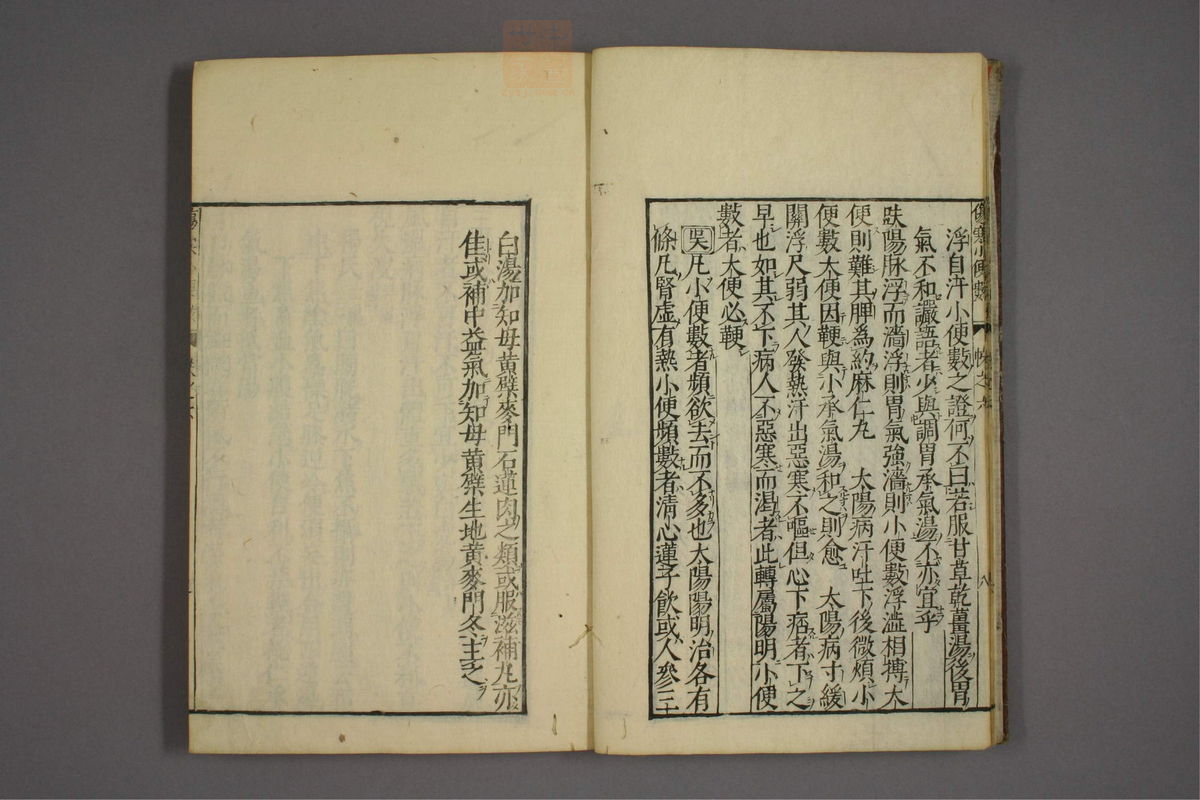 傷寒小便數 卷之六 八
浮自汗小便數之證何不曰若服甘草乾薑湯後胃
氣不和讝語者少與調胃承氣湯不亦宜乎
趺陽脉浮而濇浮則胃氣強濇則小便數浮濇相摶大
便則難其脾為約麻仁丸 太陽病汗吐下後微煩小
便數大便因鞕與小承氣湯和之則愈 太陽病寸緩
關浮尺弱其人發熱汗出惡寒不嘔但心下痞者下之
早也如其不下病人不惡寒而渴者此轉屬陽明小便
數者大便必鞕
吳凡小便數者頻欲去而不多也太陽陽明治各有
條凡腎虛有熱小便頻數者清心蓮子飲或人參三
白湯加知母黃蘗麥門石蓮肉之類或服滋補丸亦
佳或補中益氣加知母黃蘗生地黃麥門冬主之